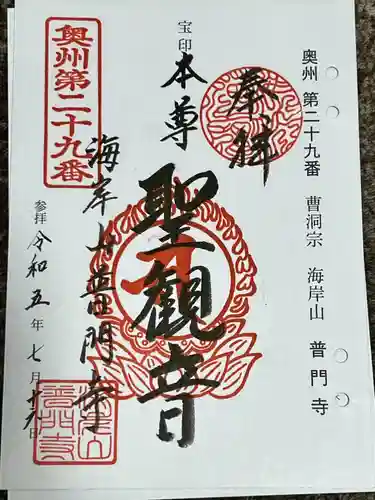 奥州 第二十九番 曹洞宗 海岸山 普門寺
奉拝
宝印
本尊
聖観音
海岸山普門寺
奥州第二十九番
参拝 令和五年七月十六日